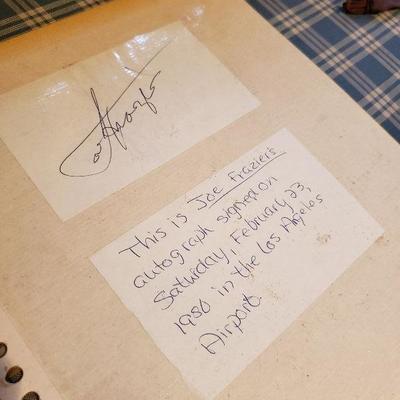 Joe Frazier
This is Joe Frazier's
autograph signed on
Saturday, February 23,
1980 in the Los Angeles
Airport.